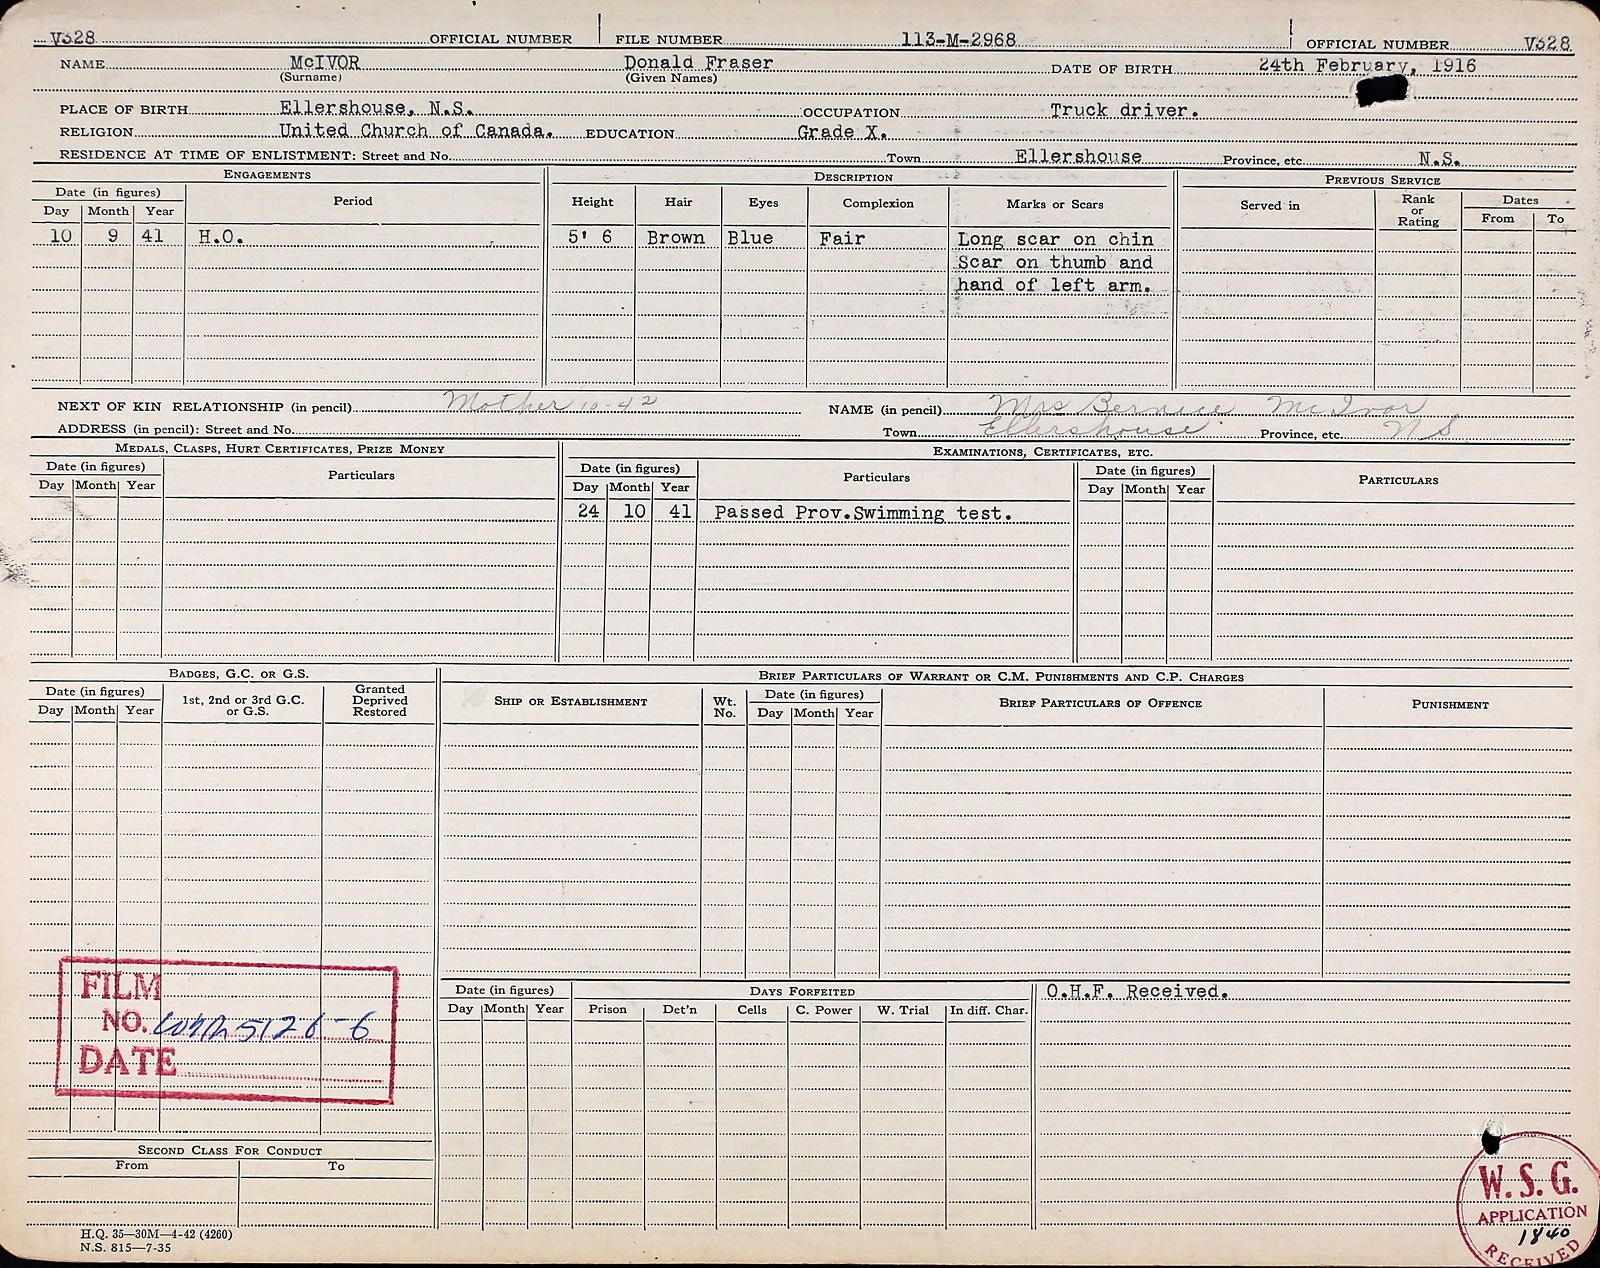 V328 OFFICIAL NUMBER FILE NUMBER 113-M-2968 OFFICIAL NUMBER V328
NAME McIVOR Donald Fraser DATE OF BIRTH 24th February, 1916
(Surname) (Given Names)
PLACE OF BIRTH Ellershouse, N.S. OCCUPATION Truck driver.
RELIGION United Church of Canada. EDUCATION Grade X.
RESIDENCE AT TIME OF ENLISTMENT: Street and No. Town Ellershouse Province, etc. N.S.
ENGAGEMENTS DESCRIPTION PREVIOUS SERVICE
Date (in figures) Period Height Hair Eyes Complexion Marks or Scars Served in Rank or Rating Dates
Day Month Year From To
10 9 41 H.O. 5' 6 Brown Blue Fair Long scar on chin
Scar on thumb and
hand of left arm.
NEXT OF KIN RELATIONSHIP (in pencil) Mother 10-42 NAME (in pencil) Mrs Bernice McIvor
ADDRESS (in pencil): Street and No. Town Ellershouse Province, etc. N S
MEDALS, CLASPS, HURT CERTIFICATES, PRIZE MONEY EXAMINATIONS, CERTIFICATES, ETC.
Date (in figures) Particulars Date (in figures) Particulars Date (in figures) PARTICULARS
Day Month Year Day Month Year Day Month Year
24 10 41 Passed Prov.Swimming test.
BADGES, G.C. OR G.S. BRIEF PARTICULARS OF WARRANT OR C.M. PUNISHMENTS AND C.P. CHARGES
Date (in figures) 1st, 2nd or 3rd G.C. or G.S. Granted Deprived Restored SHIP OR ESTABLISHMENT Wt. No. Date (in figures) BRIEF PARTICULARS OF OFFENCE PUNISHMENT
Day Month Year Day Month Year
FILM
NO. 5126-6
DATE
Date (in figures) DAYS FORFEITED O.H.F. Received.
Day Month Year Prison Det'n Cells C. Power W. Trial In diff. Char.
SECOND CLASS FOR CONDUCT
From To
H.Q. 35—30M—4-42 (4260)
N.S. 815—7-35
W.S.G.
APPLICATION
1840
RECEIVED